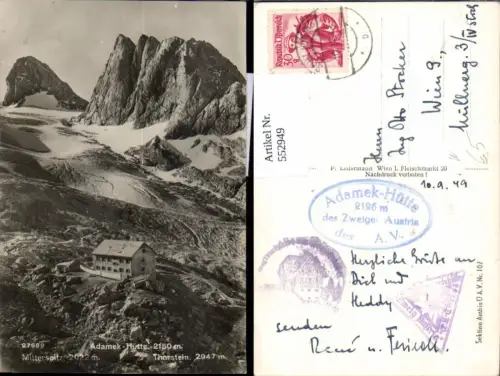 27689
Adamek-Hütte 2150 m.
Mitterspitz 2922 m. Thorstein, 2947 m.
Artikel Nr.
552949
30
Herrn
Ing Otto Stocker
Wien 9.,
Müllnerg. 3/IV Stock
P. Ledermann Wien I. Fleischmarkt 20
Nachdruck verboten!
10.9.49
Adamek-Hütte
2196 m
des Zweiges Austria
des A.V.
Herzliche Grüße an
Dich und
Heddy
senden
René u.
Sektion Austria D.A.V. Nr. 107